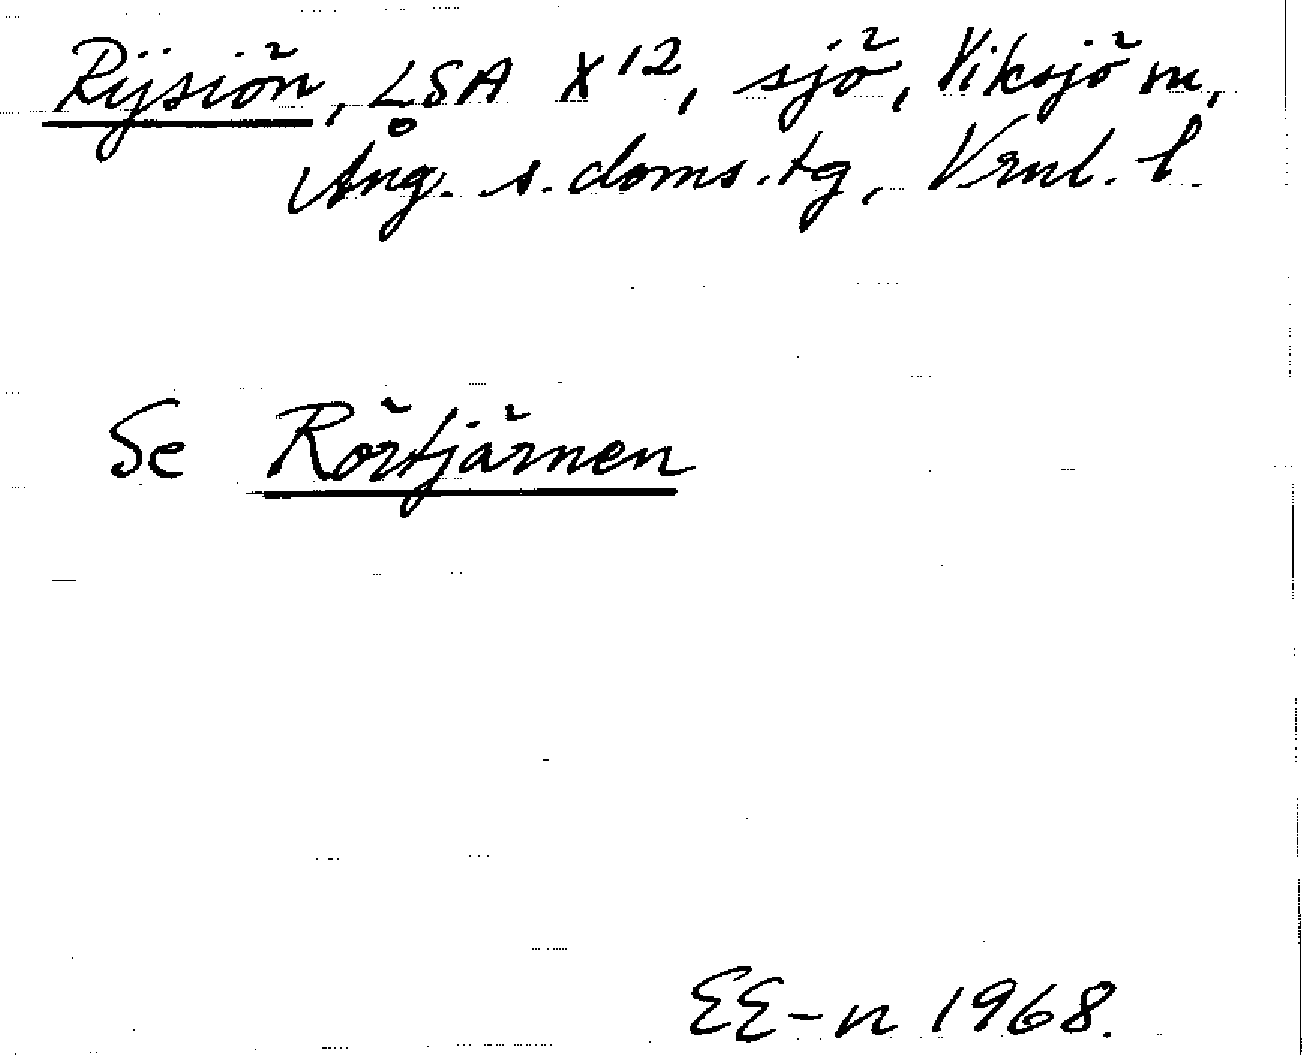 Rijsiön, LSA X¹², sjö, Viksjö sn,
Ång. s. doms.tg, Vrnl. l.
Se Rörtjärnen
EE-n 1968.